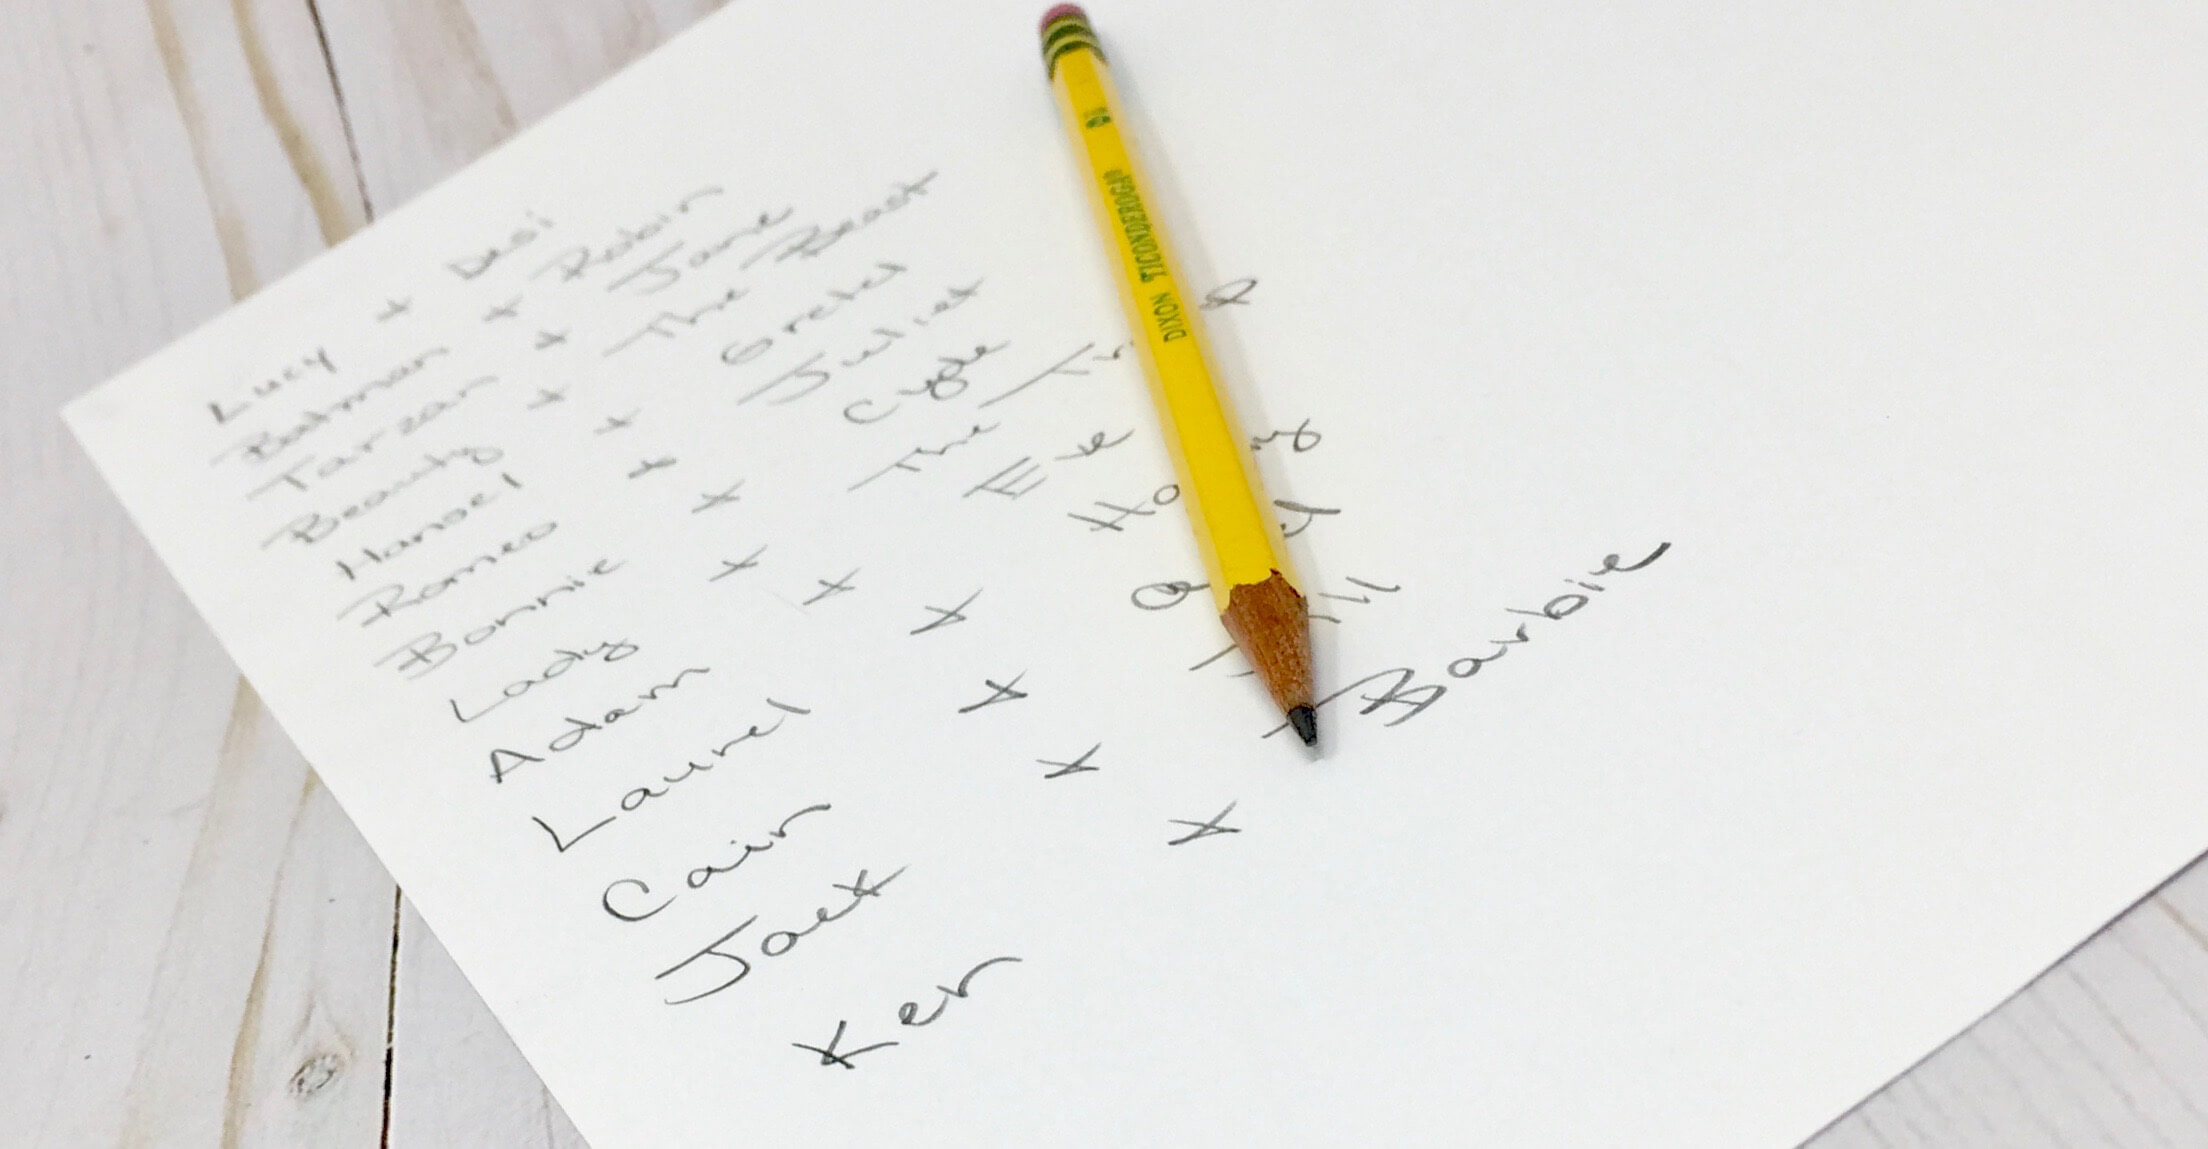 Lucy + Desi
Batman + Robin
Tarzan + Jane
Beauty + The Beast
Hansel + Gretel
Romeo + Juliet
Bonnie + Clyde
Lady + The
Adam + Eve
Laurel +
Cain +
Jack +
Ken + Barbie
DIXON TICONDEROGA®